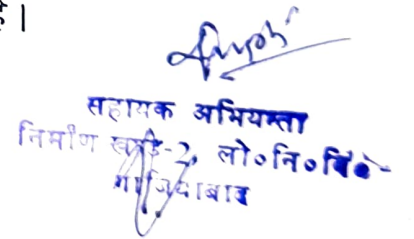 है।
सहायक अभियन्ता
निर्माण खण्ड-2, लो०नि०वि०
गाजियाबाद